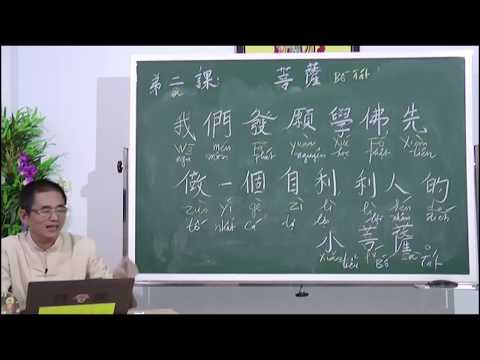 第二課: 菩薩 Bồ Tát
我們發願學佛先
Wǒ mén Fā yuàn xué Fó Xiān
ngã môn phát nguyện học phật tiên
做一個自利利人的
zuò yí gè zì lì lì rén de
tố nhất cá tự lợi lợi nhân đích
小菩薩。
Xiǎo pú sà
tiểu Bồ Tát